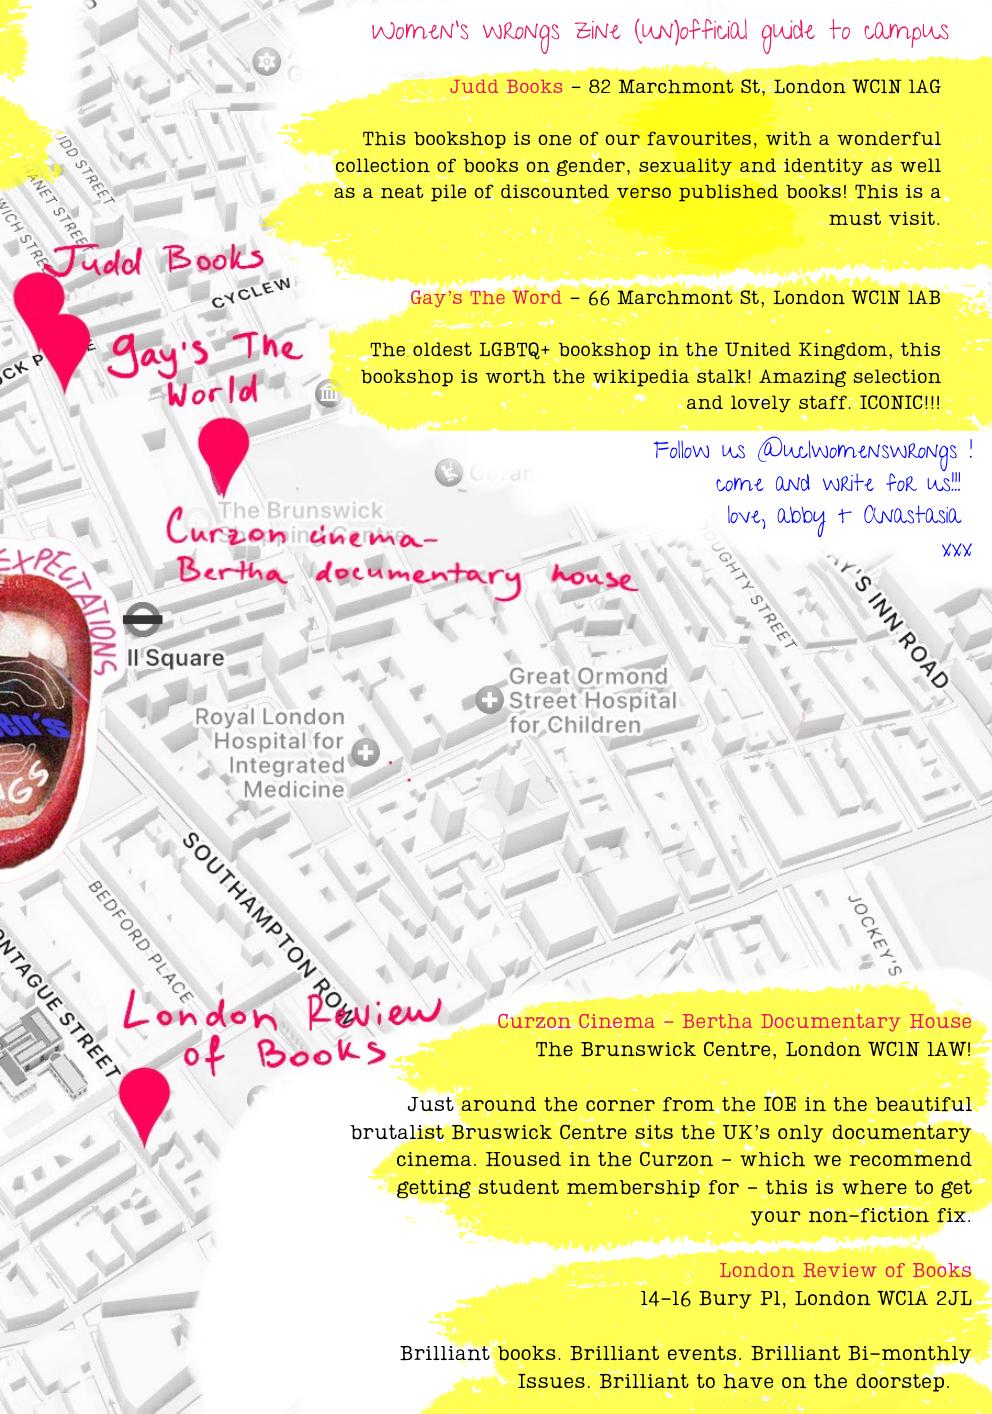 Women's Wrongs Zine (un)official guide to campus
Judd Books - 82 Marchmont St, London WC1N 1AG
This bookshop is one of our favourites, with a wonderful
collection of books on gender, sexuality and identity as well
as a neat pile of discounted verso published books! This is a
must visit.
Gay's The Word - 66 Marchmont St, London WC1N 1AB
The oldest LGBTQ+ bookshop in the United Kingdom, this
bookshop is worth the wikipedia stalk! Amazing selection
and lovely staff. ICONIC!!!
Follow us @uclwomenswrongs !
come and write for us!!!
love, abby + Anastasia
xxx
JUDD STREET
Judd Books
CYCLEW
Gay's The
World
The Brunswick
Shopping Centre
Curzon cinema-
Bertha documentary house
EXPECTATIONS
ll Square
OUGHTY STREET
Y'S INN ROAD
Great Ormond
Street Hospital
for Children
Royal London
Hospital for
Integrated
Medicine
en's
GS
SOUTHAMPTON ROW
BEDFORD PLACE
ONTAGUE STREET
JOCKEY'S
London Review
of Books
Curzon Cinema - Bertha Documentary House
The Brunswick Centre, London WC1N 1AW!
Just around the corner from the IOE in the beautiful
brutalist Bruswick Centre sits the UK's only documentary
cinema. Housed in the Curzon - which we recommend
getting student membership for - this is where to get
your non-fiction fix.
London Review of Books
14-16 Bury Pl, London WC1A 2JL
Brilliant books. Brilliant events. Brilliant Bi-monthly
Issues. Brilliant to have on the doorstep.